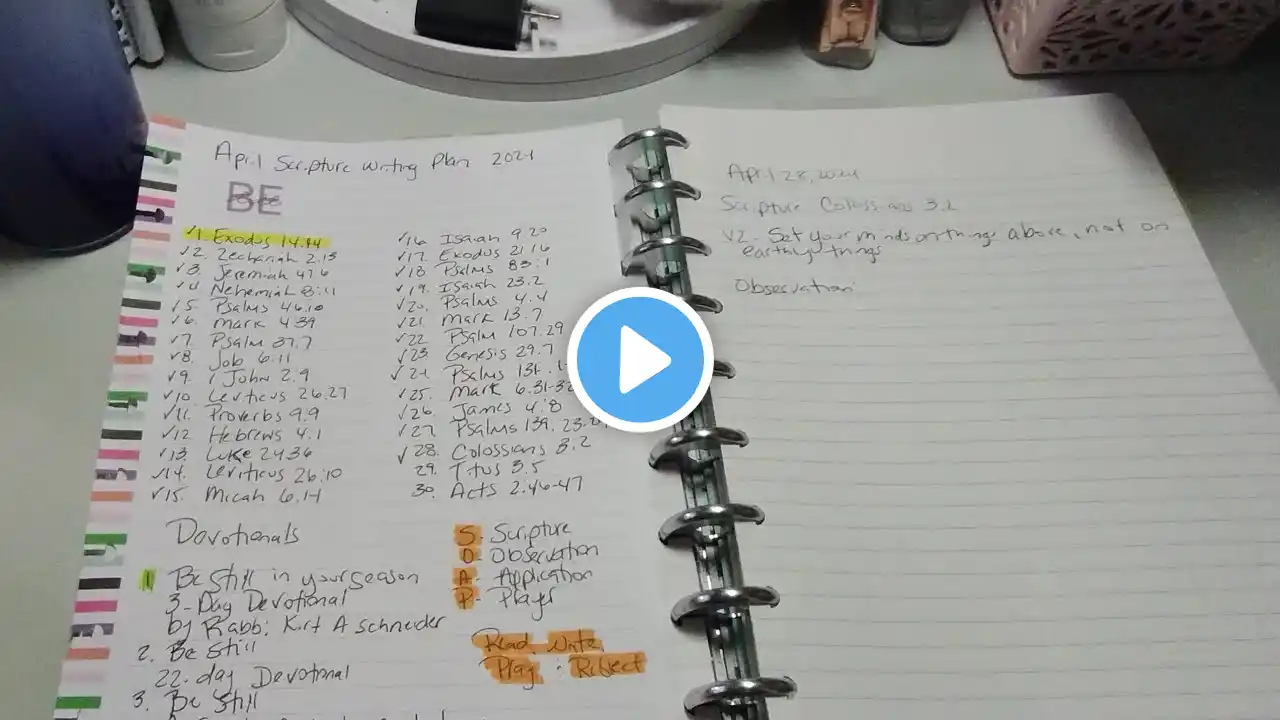 April Scripture Writing Plan 2024
BE
√1. Exodus 14.14
√2. Zechariah 2.13
√3. Jeremiah 47.6
√4. Nehemiah 8:11
√5. Psalms 46.10
√6. Mark 4.39
√7. Psalm 37.7
√8. Job 6.11
√9. 1 John 2.9
√10. Leviticus 26.27
√11. Proverbs 9.9
√12. Hebrews 4.1
√13. Luke 24.36
√14. Leviticus 26:10
√15. Micah 6.14
√16. Isaiah 9.20
√17. Exodus 21.16
√18. Psalms 83.1
√19. Isaiah 23.2
√20. Psalms 4.4
√21. Mark 13.7
√22. Psalm 107.29
√23. Genesis 29.7
√24. Psalms 131.
√25. Mark 6.31-32
√26. James 4:8
√27. Psalms 139.23.
√28. Colossians 3.2
29. Titus 3.5
30. Acts 2.46-47
Devotionals
1 Be Still in your season
3-Day Devotional
by Rabbi Kirt A schneider
2. Be Still
22-day Devotional
3. Be Still
S. Scripture
O. Observation
A. Application
P. Prayer
Read Write
Pray : Reflect
April 28, 2024
Scripture Colossians 3.2
V2. Set your minds on things above, not on
earthly things
Observation